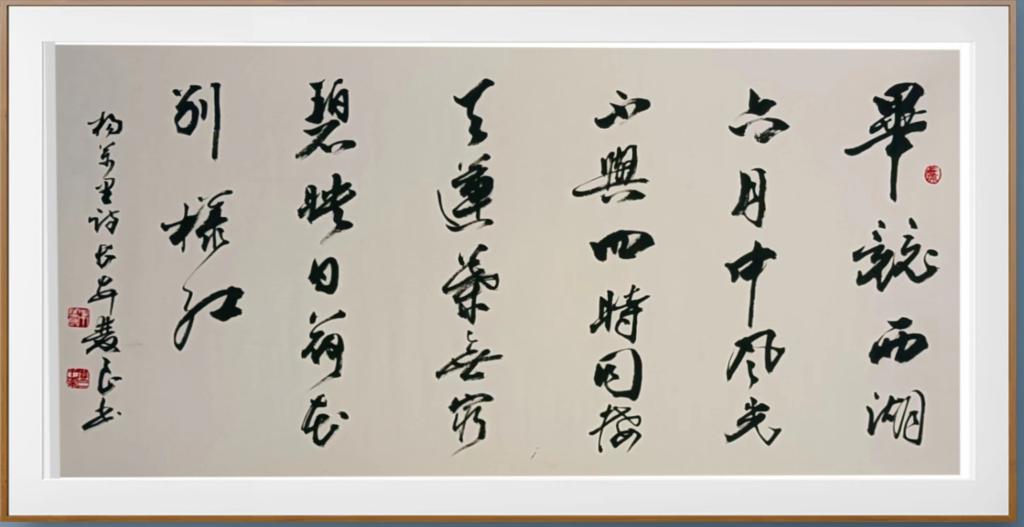 畢競西湖
六月中风光
不與四時同接
天蓮葉無窮
碧映日荷花
别樣紅
楊萬里詩長安良書